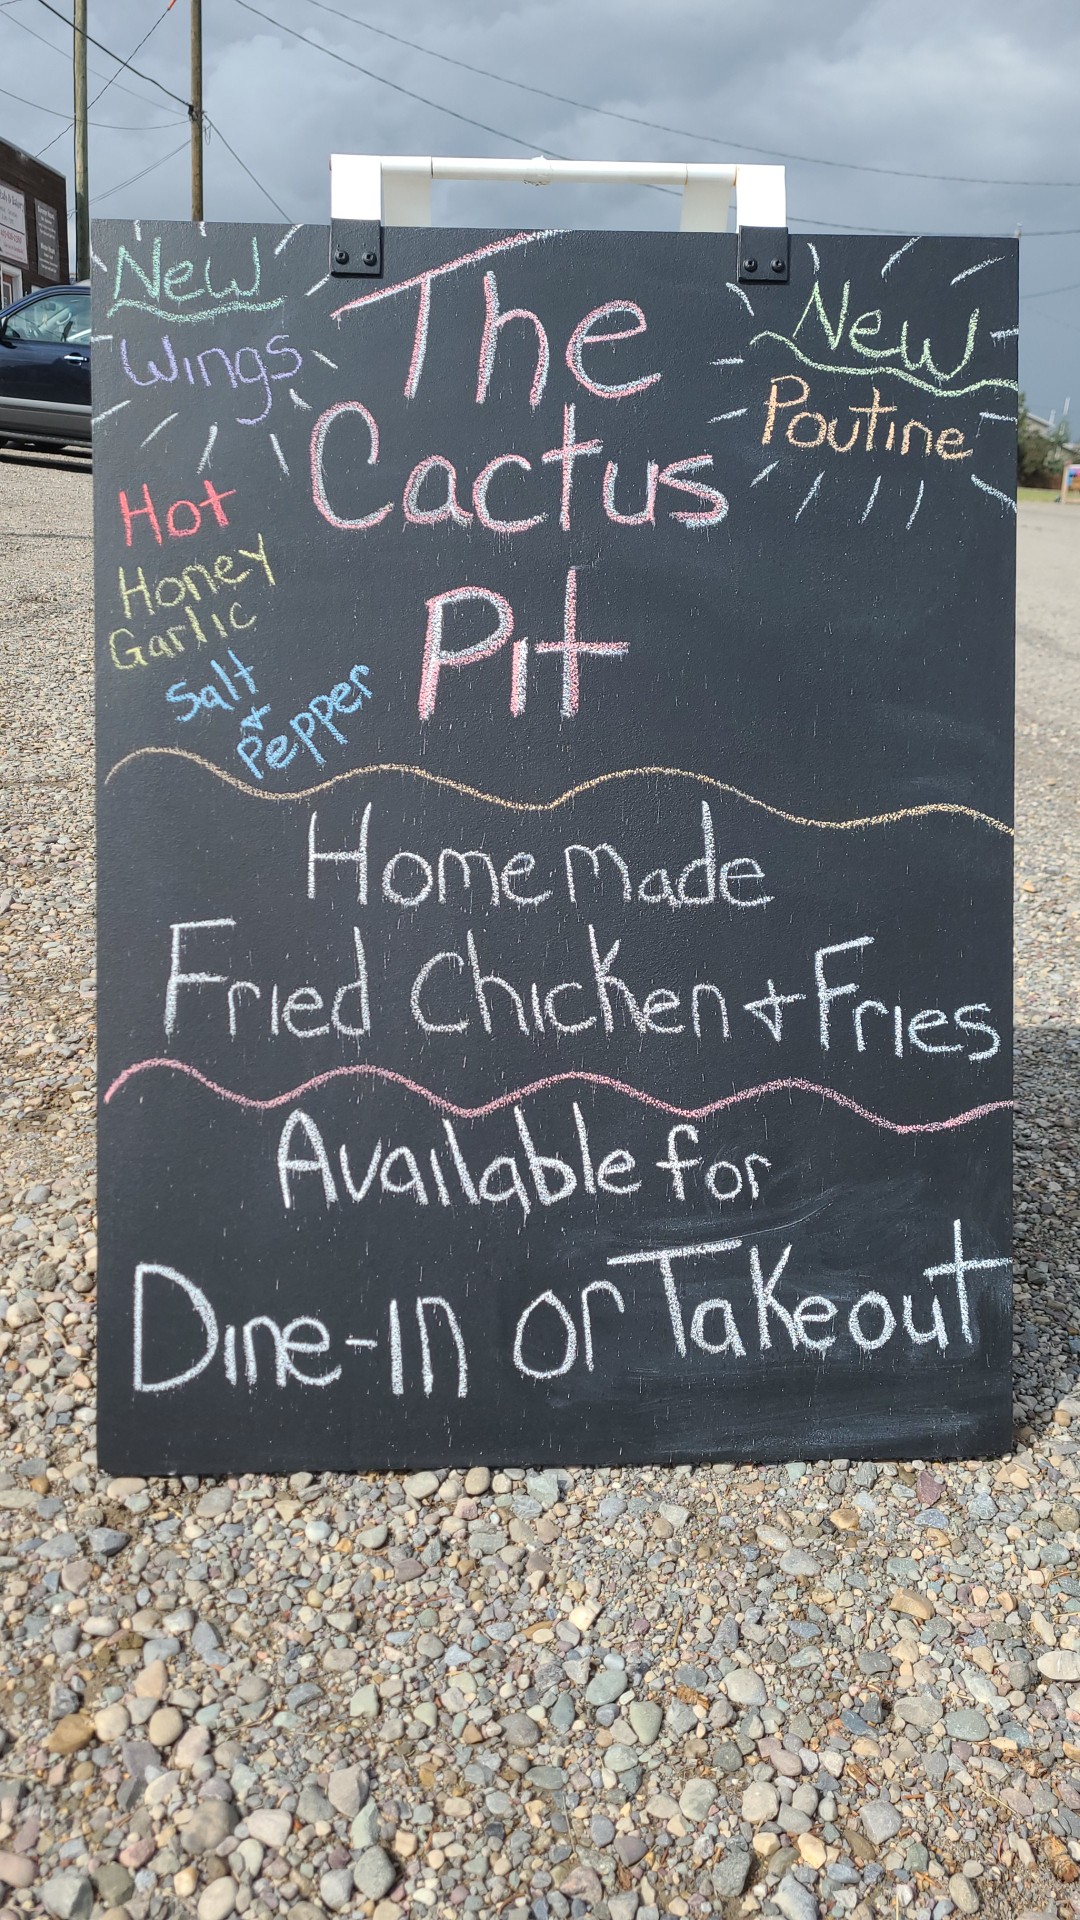 New
Wings
Hot
Honey
Garlic
Salt
&
Pepper
The
Cactus
Pit
New
Poutine
Homemade
Fried Chicken & Fries
Available for
Dine-In or Takeout